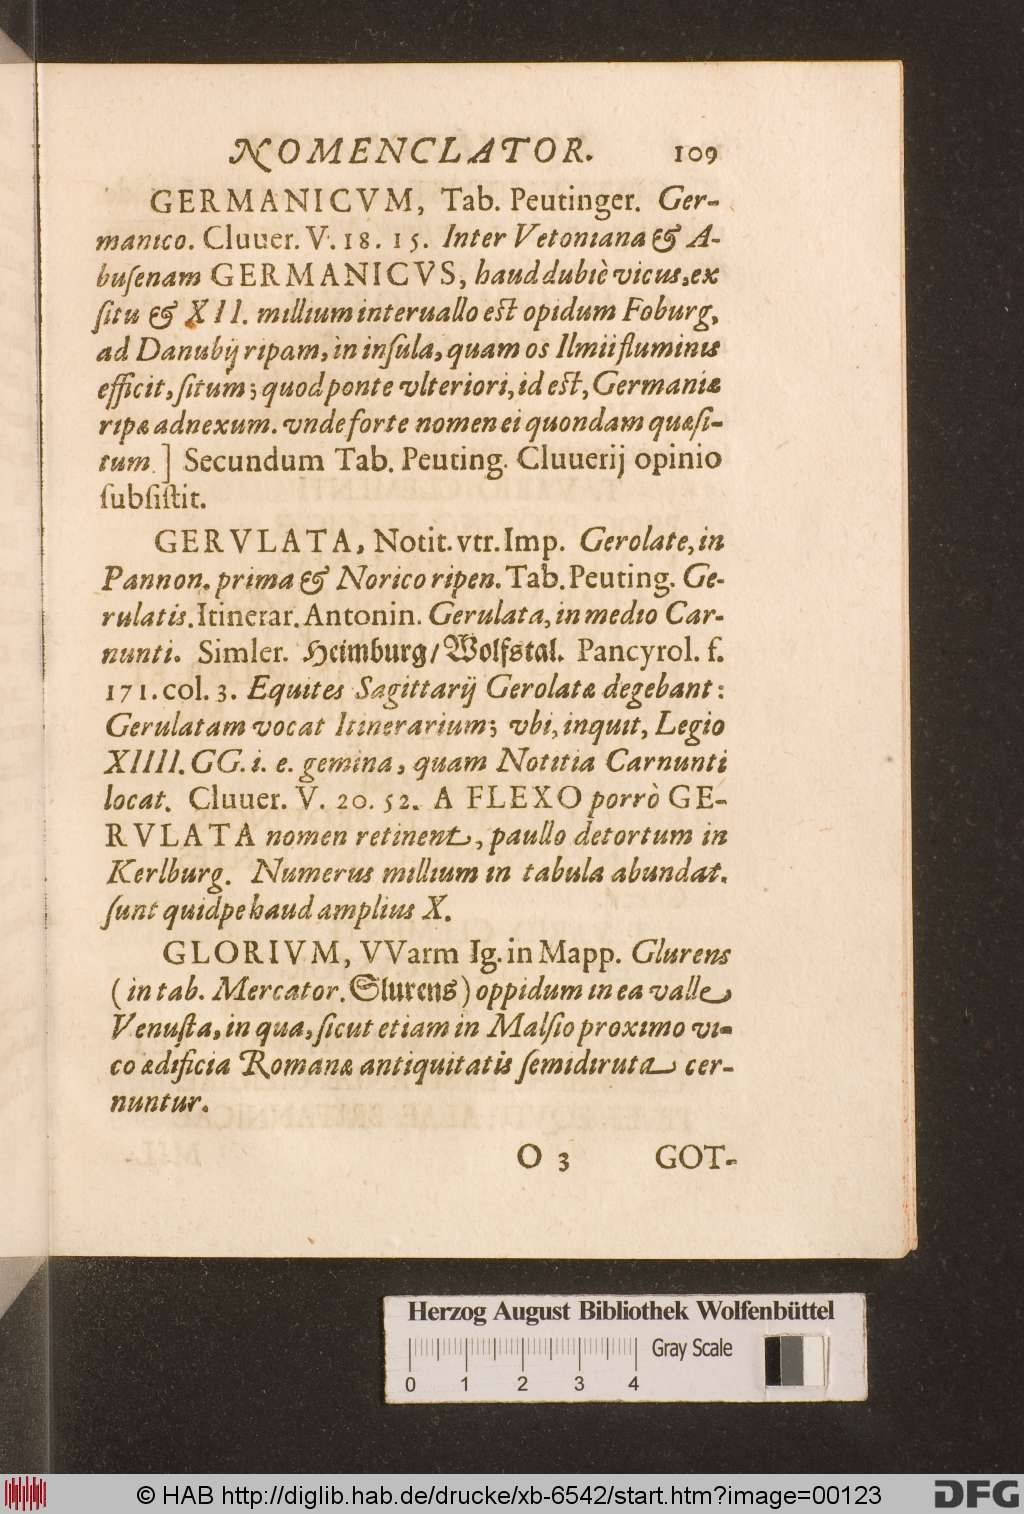 NOMENCLATOR. 109
GERMANICVM, Tab. Peutinger. Ger-
manico. Cluuer. V. 18. 15. Inter Vetoniana & A-
buſenam GERMANICVS, haud dubiè vicus, ex
ſitu & XII. millium interuallo eſt opidum Foburg,
ad Danubij ripam, in inſula, quam os Ilmii fluminis
efficit, ſitum; quod ponte vlteriori, id eſt, Germaniæ
ripæ adnexum. vnde forte nomen ei quondam quæſi-
tum.] Secundum Tab. Peuting. Cluuerij opinio
ſubſiſtit.
GERVLATA, Notit. vtr. Imp. Gerolate, in
Pannon. prima & Norico ripen. Tab. Peuting. Ge-
rulatis. Itinerar. Antonin. Gerulata, in medio Car-
nunti. Simler. Heimburg/Wolfstal. Pancyrol. f.
171. col. 3. Equites Sagittarij Gerolatæ degebant:
Gerulatam vocat Itinerarium; vbi, inquit, Legio
XIIII. GG. i. e. gemina, quam Notitia Carnunti
locat. Cluuer. V. 20. 52. A FLEXO porrò GE-
RVLATA nomen retinent, paullo detortum in
Kerlburg. Numerus millium in tabula abundat.
ſunt quidpe haud amplius X.
GLORIVM, VVarm Ig. in Mapp. Glurens
(in tab. Mercator. Slurens) oppidum in ea valle
Venuſta, in qua, ſicut etiam in Malſio proximo vi-
co ædificia Romanæ antiquitatis ſemidiruta cer-
nuntur.
O 3 GOT-
Herzog August Bibliothek Wolfenbüttel
Gray Scale
0 1 2 3 4
© HAB http://diglib.hab.de/drucke/xb-6542/start.htm?image=00123
DFG